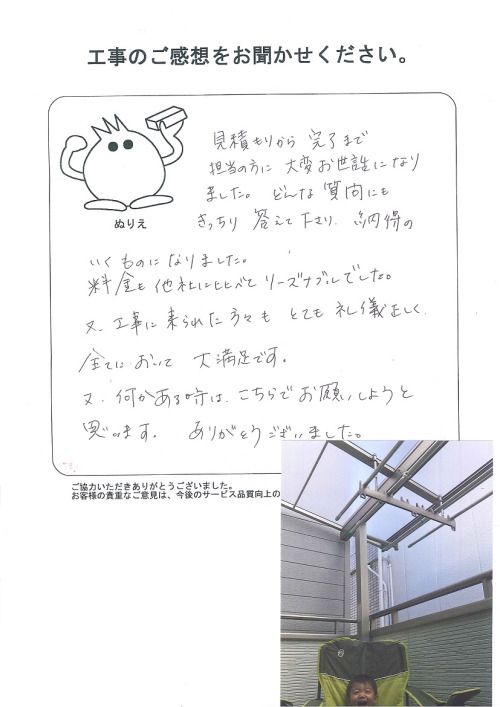 工事のご感想をお聞かせください。
見積もりから 完了まで
担当の方に 大変お世話になり
ました。 どんな質問にも
きっちり 答えて下さり、納得の
ぬりえ
いくものになりました。
料金も他社にくらべてリーズナブルでした。
又、工事に来られた方々も とても礼儀正しく、
全てにおいて 大満足です。
又、何かある時は、こちらでお願いしようと
思います。 ありがとうございました。
ご協力いただきありがとうございました。
お客様の貴重なご意見は、今後のサービス品質向上の